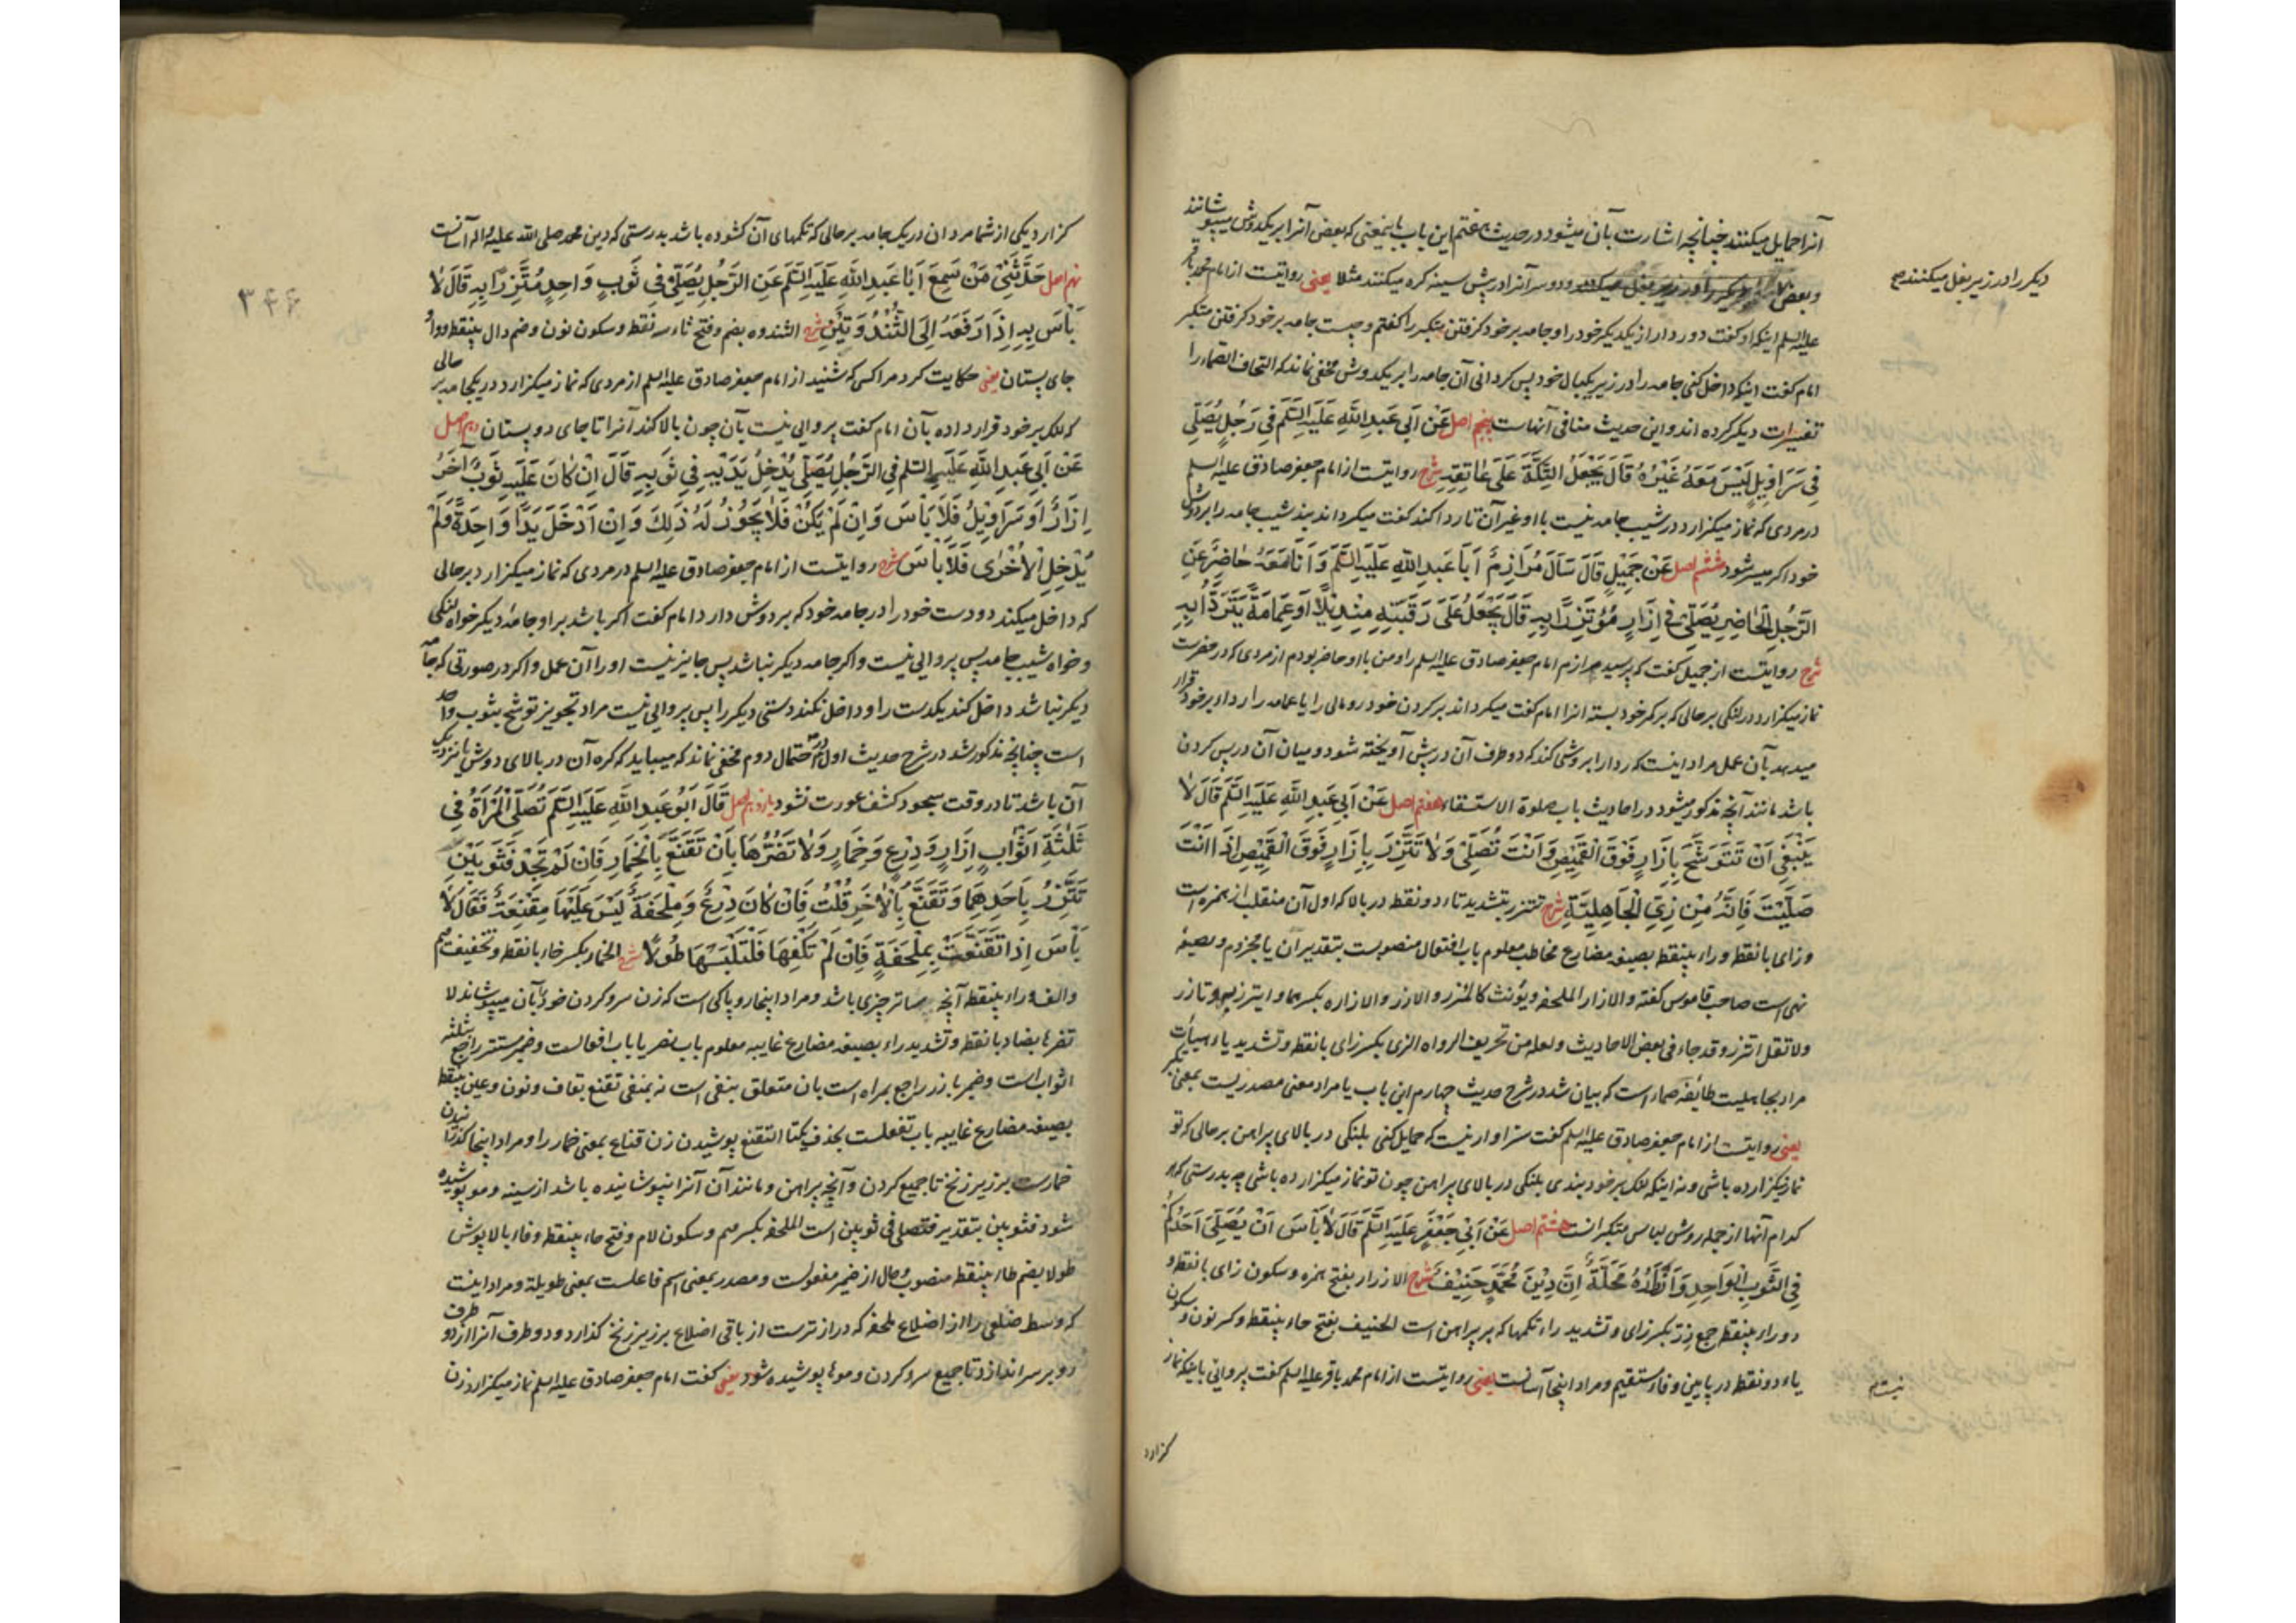 آنرا حمایل میکنند چنانچه اشارت بآن میشود در حدیث هفتم این باب باینمعنی که بعض آنرا بر یکدوش میپوشانند
و بعض دیگر را در زیر بغل میکنند و دو سر آنرا در پیش سینه گره میکنند مثلا یعنی روایتست از امام محمد باقر
دیگر را در زیر بغل میکنند صح
علیه السلم اینکه او گفت دور دار از یکدیگر خود را و جامه بر خود گرفتن متکبر را گفتم و چیست جامه بر خود گرفتن متکبر
امام گفت اینکه داخل کنی جامه را در زیر یکبال خود پس گردانی آن جامه را بر یکدوش مخفی نماند که التحاف الصماء را
تفسیرات دیگر کرده اند و این حدیث منافی آنهاست پنجم اصل عَنْ اَبی عَبدِ اللهِ عَلَیهِ السَّلَم فِی رَجُلٍ یُصَلِّی
فِی سَرَاوِیلٍ لَیْسَ مَعَهُ غَیْرُهُ قَالَ یَجْعَلُ التِّکَّةَ عَلَی عَاتِقِهِ شرح روایتست از امام جعفر صادق علیه السلم
در مردی که نماز میگزارد در شیب جامه نیست با او غیر آن تا ردا کند گفت میگرداند بند شیب جامه را بر دوش
خود اگر میسر شود ششم اصل عَنْ جَمِیْلٍ قَالَ سَاَلَ مُرَازِمٌ اَبَا عَبدِ اللهِ عَلَیهِ السَّلَم وَ اَنَا مَعَهُ حَاضِرٌ عَنِ
الرَّجُلِ الحَاضِرِ یُصَلِّی فی اِزَارٍ مُؤْتَزِرًا بِهِ قَالَ یَجْعَلُ عَلَی رَقَبَتِهِ مِنْدِیْلًا اَو عِمَامَةً یَتَرَدَّا بِهِ
شرح روایتست از جمیل گفت که پرسید مرازم امام جعفر صادق علیه السلم را و من با او حاضر بودم از مردی که در حضرست
نماز میگزارد در لنگی بر حالی که بر کمر خود بسته انرا امام گفت میگرداند بر گردن خود رومالی را یا عمامه را ردا بر خود قرار
میدهد بآن عمل مراد اینست که ردا را بروشی کند که دو طرف آن در پیش آویخته شود و میان آن در پس گردن
باشد مانند آنچه مذکور میشود در احادیث باب صلوة الاستسقاء هفتم اصل عَنْ اَبی عَبدِ اللهِ عَلَیهِ السَّلَم قَالَ لَا
یَنْبَغِی اَنْ تَتَوَشَّحَ بِاِزَارٍ فَوْقَ القَمِیْصِ وَ اَنْتَ تُصَلِّی وَ لَا تَتَّزِرْ بِاِزَارٍ فَوْقَ القَمِیْصِ اِذَا اَنْتَ
صَلَّیْتَ فَاِنَّهُ مِنْ زِیِّ الجَاهِلِیَّةِ شرح تتزر بتشدید تاء دو نقطه در بالا که اول آن منقلب از همزه است
و زای با نقطه و راء بینقطه بصیغه مضارع مخاطب معلوم باب افتعال منصوبست بتقدیر آن یا مجزوم و بصیغه
نهی است صاحب قاموس گفته و الازار الملحفه و یؤنث کالمئزر و الازر و الازاره بکسرهما و ایتزر به و تازر
ولا تقل اتزر و قد جاء فی بعض الاحادیث و لعله من تحریف الرواه الزی بکسر زای با نقطه و تشدید یاء هیأت
مراد بجاهلیت طائفه صماء است که بیان شد در شرح حدیث چهارم این باب یا مراد معنی مصدریست بمعنی تکبر
یعنی روایتست از امام جعفر صادق علیه السلم گفت سزاوار نیست که حمایل کنی بلنگی در بالای پیراهن بر حالی که تو
نماز میگزارده باشی و نه اینکه لنگ بر خود بندی بلنگی در بالای پیراهن چون تو نماز میگزارده باشی چه بدرستی که هر
کدام آنها از جمله روش لباس متکبرانست هشتم اصل عَنْ اَبِی جَعْفَرٍ عَلَیهِ السَّلَم قَالَ لَا بَأْسَ اَنْ یُصَلِّیَ اَحَدُکُمْ
فِی الثَّوبِ الوَاحِدِ وَ اَزْرَارُهُ مُحَلَّلَةٌ اِنَّ دِیْنَ مُحَمَّدٍ حَنِیْفٌ شرح الازرار بفتح همزه و سکون زای با نقطه و
دو راء بینقطه جمع زر بکسر زای و تشدید راء تکمها که بر پیراهن است الحنیف بفتح حاء بینقطه و کسر نون و سکون
یاء دو نقطه در پایین و فاء مستقیم و مراد اینجا آسانست یعنی روایتست از امام محمد باقر علیه السلم گفت پروائی باینکه نماز
نیست صح
گزارد
گزارد یکی از شما مردان در یک جامه بر حالی که تکمهای آن گشوده باشد بدرستی که دین محمد صلی الله علیه و اله آسانست
نهم اصل حَدَّثَنِی مَنْ سَمِعَ اَبَا عَبدِ اللهِ عَلَیهِ السَّلَم عَنِ الرَّجُلِ یُصَلِّی فِی ثَوبٍ وَاحِدٍ مُتَّزِرًا بِهِ قَالَ لَا
بَأْسَ بِهِ اِذَا رَفَعَهُ اِلَی الثُّنْدُوَتَیْنِ شرح الثندوه بضم و فتح ثاء سه نقطه و سکون نون و ضم دال بینقطه و واو
جای پستان یعنی حکایت کرد مرا کسی که شنید از امام جعفر صادق علیه السلم از مردی که نماز میگزارد در یکجامه بر حالی
که لنگ بر خود قرار داده بآن امام گفت پروایی نیست بآن چون بالا کند آنرا تا جای دو پستان دهم اصل
عَنْ اَبی عَبدِ اللهِ عَلَیهِ السَّلَم فِی الرَّجُلِ یُصَلِّی یُدْخِلُ یَدَیْهِ فِی ثَوبِهِ قَالَ اِنْ کَانَ عَلَیهِ ثَوبٌ آخَرُ
اِزَارٌ اَو سَرَاوِیْلُ فَلَا بَأْسَ وَ اِنْ لَمْ یَکُنْ فَلَا یَجُوْزُ لَهُ ذٰلِکَ وَ اِنْ اَدْخَلَ یَدًا وَاحِدَةً وَ لَمْ
یُدْخِلِ الاُخْرَی فَلَا بَأْسَ شرح روایتست از امام جعفر صادق علیه السلم در مردی که نماز میگزارد بر حالی
که داخل میکند دو دست خود را در جامه خود که بر دوش دارد امام گفت اگر باشد بر او جامۀ دیگر خواه لنگی
و خواه شیب جامه پس پروایی نیست و اگر جامه دیگر نباشد پس جایز نیست او را آن عمل و اگر در صورتی که جامه
دیگر نباشد داخل کند یکدست را و داخل نکند دستی دیگر را پس پروایی نیست مراد تجویز توشح بثوب واحد
است چنانچه مذکور شد در شرح حدیث اول در احتمال دوم مخفی نماند که میباید که گره آن در بالای دوش یا نزدیک
آن باشد تا در وقت سجود کشف عورت نشود یازدهم اصل قَالَ اَبُو عَبدِ اللهِ عَلَیهِ السَّلَم تُصَلِّی المَرْاَةُ فِی
ثَلٰثَةِ اَثْوَابٍ اِزَارٍ وَ دِرْعٍ وَ خِمَارٍ وَ لَا تَضُرُّهَا بِاَنْ تَقَنَّعَ بِالخِمَارِ فَاِنْ لَمْ تَجِدْ فَثَوبَیْنِ
تَتَّزِرُ بِاَحَدِهِمَا وَ تَقَنَّعُ بِالاٰخَرِ قُلْتُ فَاِنْ کَانَ دِرْعٌ وَ مِلْحَفَةٌ لَیْسَ عَلَیْهَا مِقْنَعَةٌ فَقَالَ لَا
بَأْسَ اِذَا تَقَنَّعَتْ بِمِلْحَفَةٍ فَاِنْ لَمْ تَکْفِهَا فَلْتَلْبَسْهَا طُوْلًا شرح الخمار بکسر خاء با نقطه و تخفیف میم
و الف و راء بینقطه آنچه ساتر چیزی باشد و مراد اینجا روپاکی است که زن سر و گردن خود بآن میپوشاند لا
تضرها بضاد با نقطه و تشدید راء بصیغه مضارع غایبه معلوم باب نصر یا باب افعالست و ضمیر مستتر راجع بثلثه
اثواب است و ضمیر بارز راجع بمراه است بان متعلق بنفی است نه بمنفی تقنع بقاف و نون و عین بینقطه
بصیغه مضارع غایبه باب تفعلست بحذف یکتا التقنع پوشیدن زن قناع بمعنی خمار را و مراد اینجا گذرانیدن
خمارست بر زیر زنخ تا جمیع گردن و آنچه پیراهن و مانند آن آنرا نپوشانیده باشد از سینه و مو پوشیده
شود فثوبین بتقدیر فتصلی فی ثوبین است الملحفه بکسر میم و سکون لام و فتح حاء بینقطه و فاء بالاپوش
طولا بضم طاء بینقطه منصوب و حال از ضمیر مفعولست و مصدر بمعنی اسم فاعلست بمعنی طویلة و مراد اینست
که وسط ضلعی را از اضلاع ملحفه که درازترست از باقی اضلاع بر زیر زنخ گذارد و دو طرف آنرا از دو طرف
رو بر سر اندازد تا جمیع سر و گردن و موها پوشیده شود یعنی گفت امام جعفر صادق علیه السلم نماز میگزارد زن